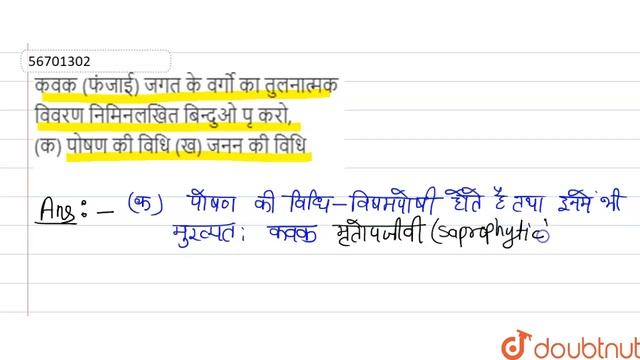 56701302
कवक (फंजाई) जगत के वर्गो का तुलनात्मक
विवरण निमिनलखित बिन्दुओ पृ करो,
(क) पोषण की विधि (ख) जनन की विधि
Ans: – (क) पोषण की विधि – विषमपोषी होते है तथा इनमें भी
मुख्यत: कवक मृतोपजीवी (Saprophytic)
doubtnut